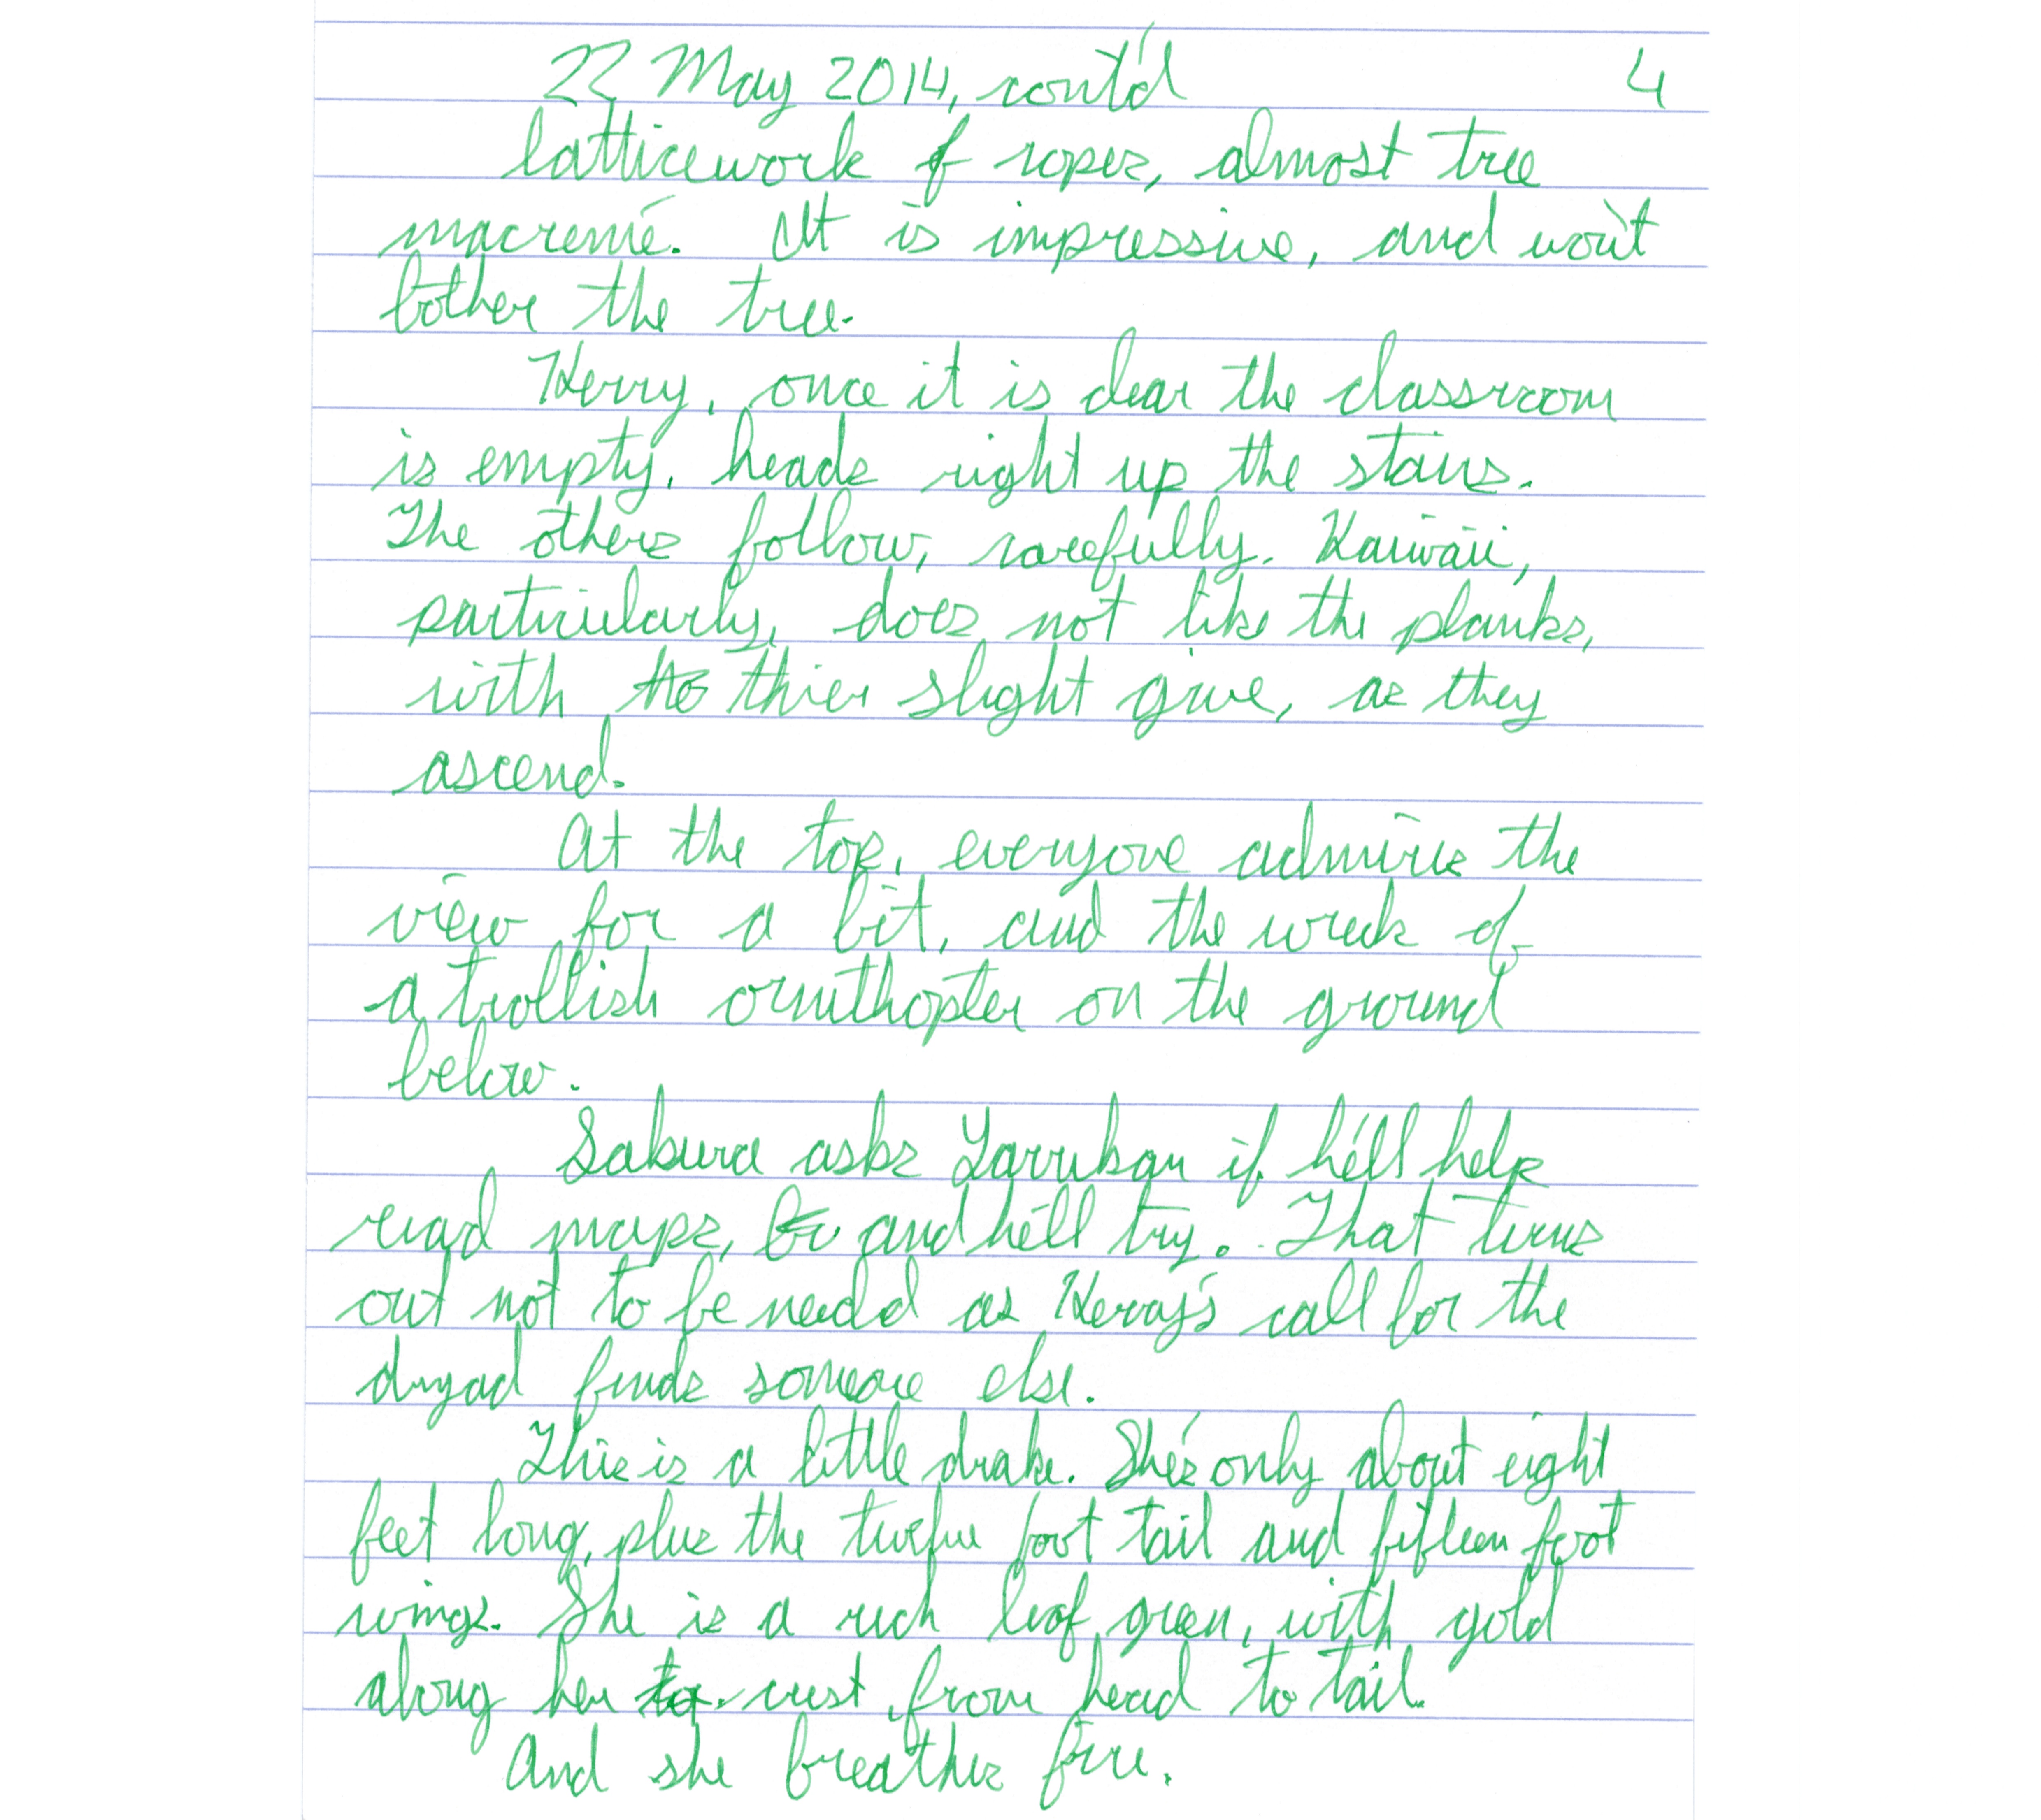 22 May 2014, cont'd 4
latticework of ropes, almost tree
macremé. It is impressive, and won't
bother the tree.
Kerry, once it is clear the classroom
is empty, heads right up the stairs.
The others follow, carefully. Kaiwaii,
particularly, does not like the planks,
with thier slight give, as they
ascend.
At the top, everyone admires the
view for a bit, and the wreck of
a trollish ornithopter on the ground
below.
Sakura asks Yarrukan if he'll help
read maps, and he'll try. That turns
out not to be needd as Kerry's call for the
dryad finds someone else.
This is a little drake. She's only about eight
feet long, plus the twelve foot tail and fifteen foot
wings. She is a rich leaf green, with gold
along her crest from head to tail.
And she breathes fire.